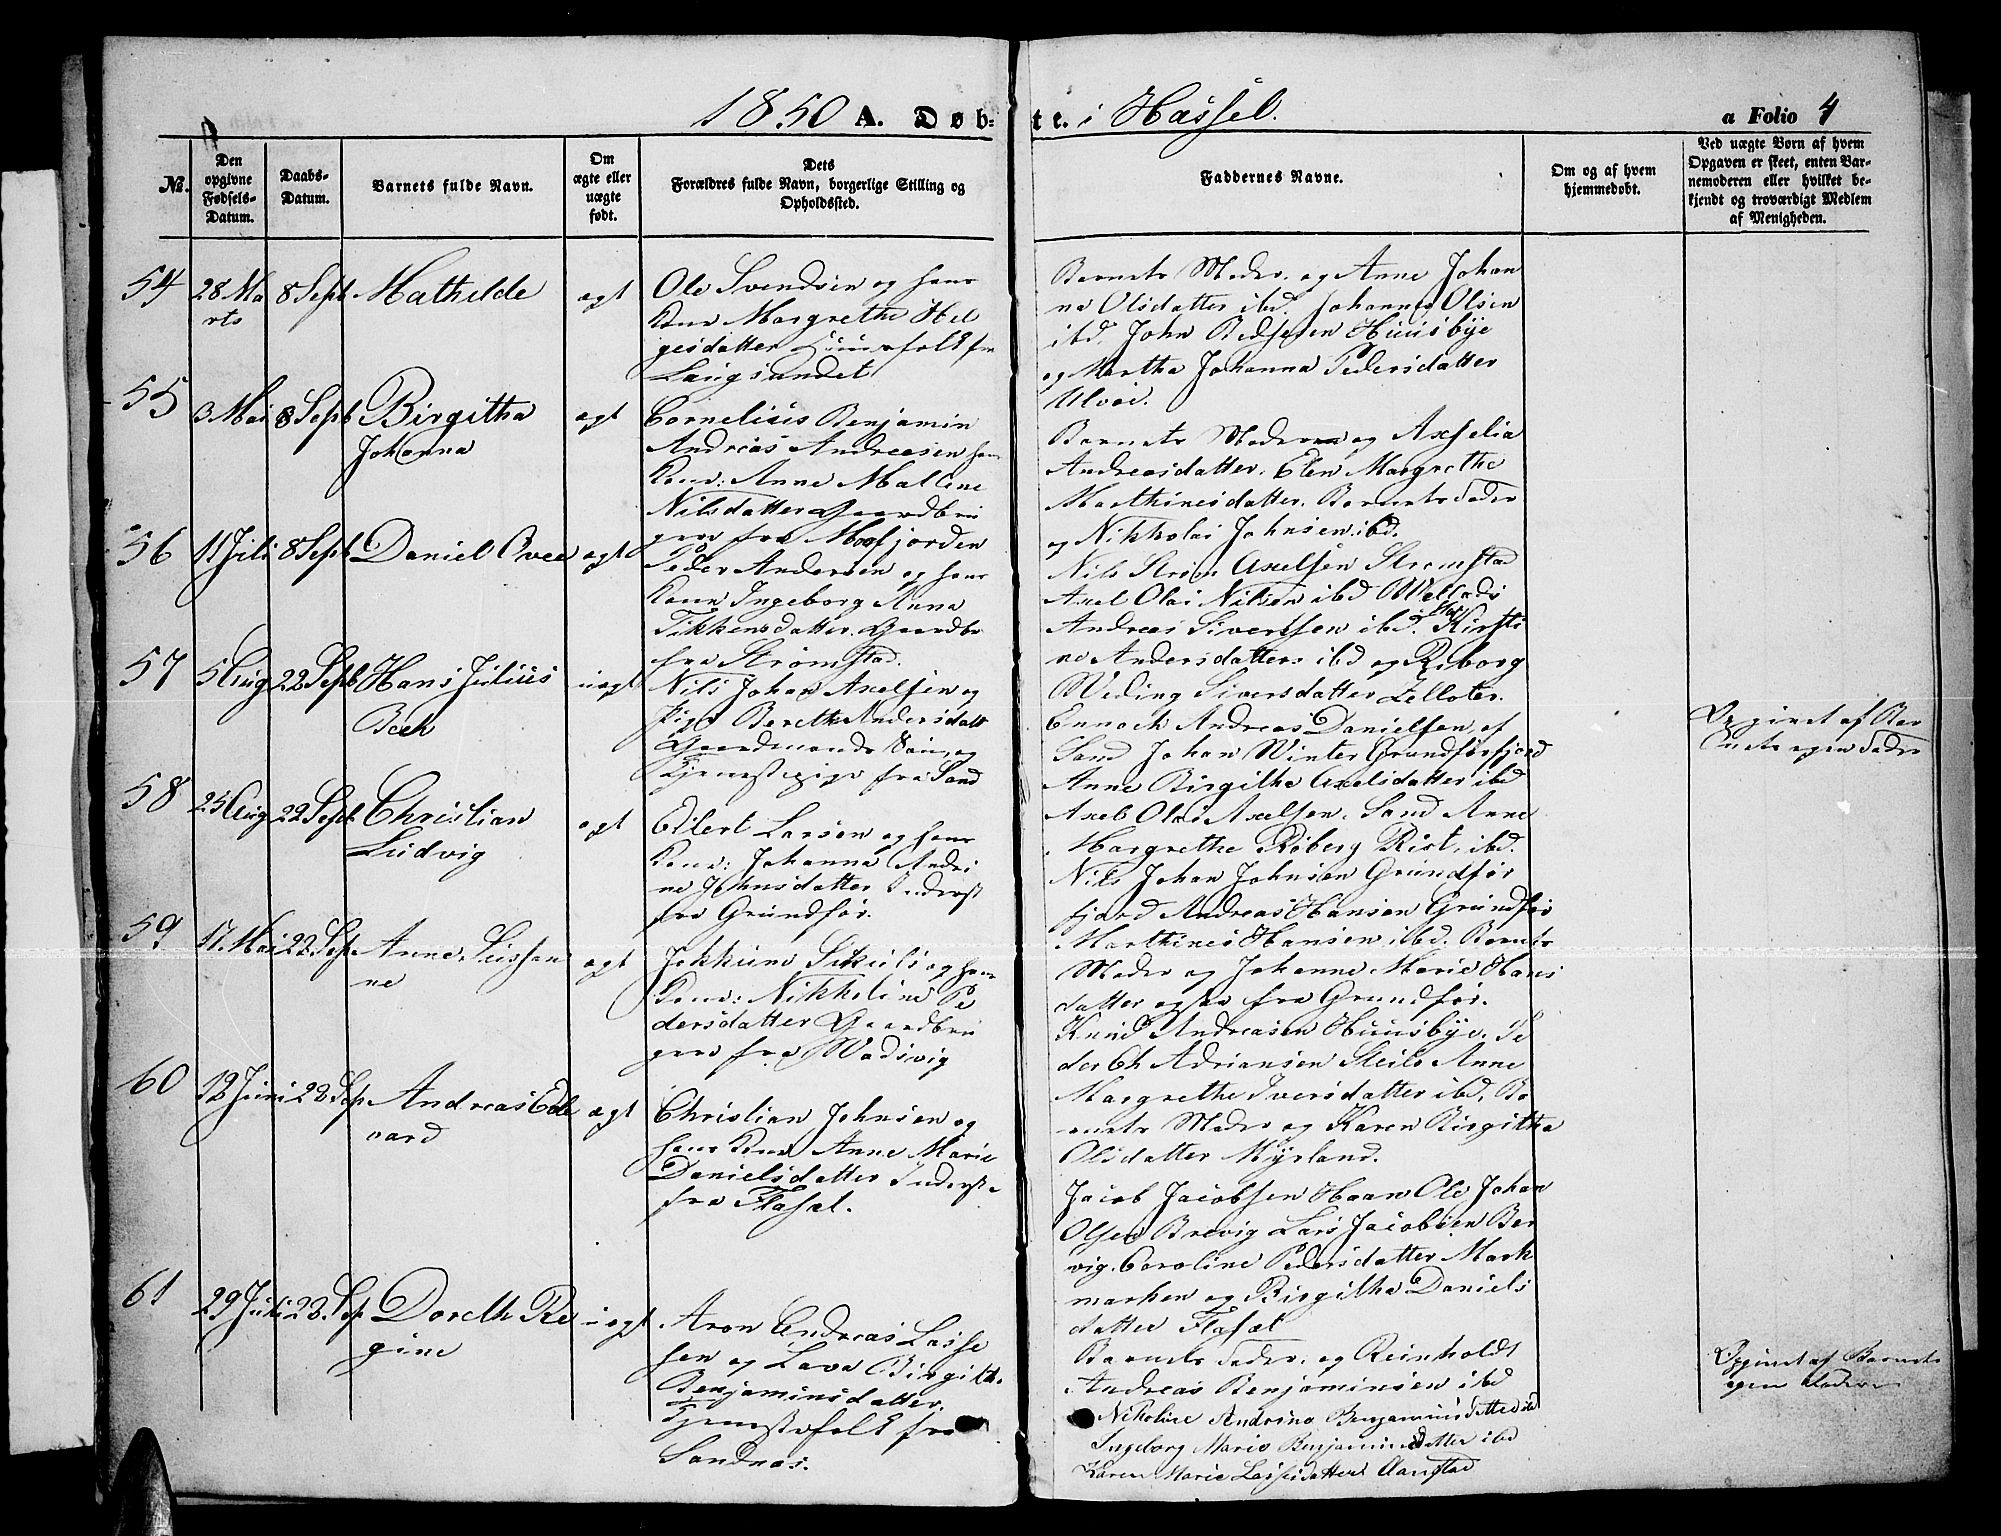 1850 A. Døb- te. i Hassel. a Folio 4
No.
Den opgivne Fødsels-Datum.
Daabs-Datum.
Barnets fulde Navn.
Om ægte eller uægte født.
Dets Forældres fulde Navn, borgerlige Stilling og Opholdssted.
Faddernes Navne.
Om og af hvem hjemmedøbt.
Ved uægte Børn af hvem Opgaven er skeet, enten Barnemoderen eller hvilket bekjendt og troværdigt Medlem af Menigheden.
54
28 Ma
rts
8 Sept
Mathilde
ægt
Ole Svendsen og hans
Kone Margrethe Hel
gesdatter Huusfolk fra
Langsundet
Barnets Moder og Anne Johan
na Olsdatter ibd. Johannes Olsen
ibd. John Pedersen Huusbye
og Martha Johanna Pedersdatter
Ulvøe.
55
3 Mai
8 Sept
Birgitha
Johanna
ægt
Cornelius Benjamin
Andreas Andreasen hans
Kone: Anne Maline
Nilsdatter Gaardbru
gere fra Morfjorden
Barnets Moder og Axselia
Andreasdatter. Elen Margrethe
Marthinesdatter. Barnets Fader
og Nikkolai Johnsen ibd.
56
11 Juli
8 Sept
Daniel Ovee
ægt
Peder Andersen og hans
Kone Ingeborg Anna
Tikkensdatter. Gaardbr
fra Strømstad.
Nils Strøm Axelsen Strømstad
Axel Olai Nilsen ibd
Andreas Sivertsen ibd. Kirsti
ne Andersdatter ibd og Riborg
Weding Siversdatter
57
5 Aug
22 Sept
Hans Julius
Bech
uægt
Nils Johan Axelsen og
Pige Bereth Andersdatt
Gaardmands Søn og
Tjenestepige fra Sand
Ennoch Andreas Danielsen af
Sand Johan Winter Grundførfjord
Anne Birgithe Axelsdatter ibd
Axel Olai Axelsen. Sand Anne
Margrethe Røberg Rist, ibd.
Opgivet af Bar
nets egen Fader
58
25 Aug
22 Sept
Christian
Ludvig
ægt
Edlert Larsen og hans
Kone: Johanna Andri
ne Johnsdatter Inderst
fra Grundfør.
Nils Johan Johnsen Grundfør
fjord Andreas Hansen Grundfør
Marthines Hansen ibd. Barnets
Moder og Johanne Marie Hans
datter fra Grundfør.
59
17. Mai
22 Sep.
Anne Sussan
ne
ægt
Jokkum og hans
Kone: Nikkoline Pe
dersdatter Gaardbru
gere fra Wadsvig
Knud Andreasen Huusbye. Pe
der Ch Adriansen Steile Anne
Margrethe Iversdatter ibd, Ba
rnets Moder og Karen Birgitha
Olsdatter Myrland.
60
12 Juni
22 Sep
Andreas Ed
vard
ægt
Christian Johnsen og
hans Kone Anne Marie
Danielsdatter Inderste
fra Flasæt.
Jacob Jacobsen Haan Ole Johan
Olsen Brevig Lars Jacobsen Bre
vig. Caroline Pedersdatter Mark
marken og Birgitha Daniels
datter Flasæt
61
29 Juli
22. Sep
Doreth Re
gine
uægt
Aron Andreas Lasse
sen og Lava Birgith.
Benjaminsdatter.
Tjenestefolk fra
Sandnæs.
Barnets Fader. og Reinholdt
Andreas Benjaminsen ibd
Nikoline Andrina Benjaminsdatter ibd
Ingeborg Marie Benjaminsdatter ibd
Karen Marie Lassesdatter Aanstad
Opgivet af Barnets
egen Moder